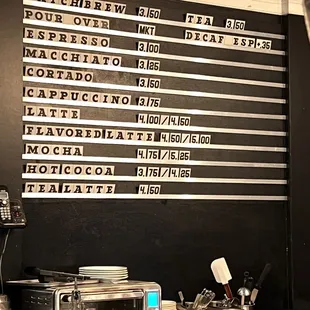 BREW 3.50 TEA 3.50
POUR OVER MKT DECAF ESP +.35
ESPRESSO 3.00
MACCHIATO 3.25
CORTADO 3.50
CAPPUCCINO 3.75
LATTE 4.00/4.50
FLAVORED LATTE 4.50/5.00
MOCHA 4.75/5.25
HOT COCOA 3.75/4.25
TEA LATTE 4.50